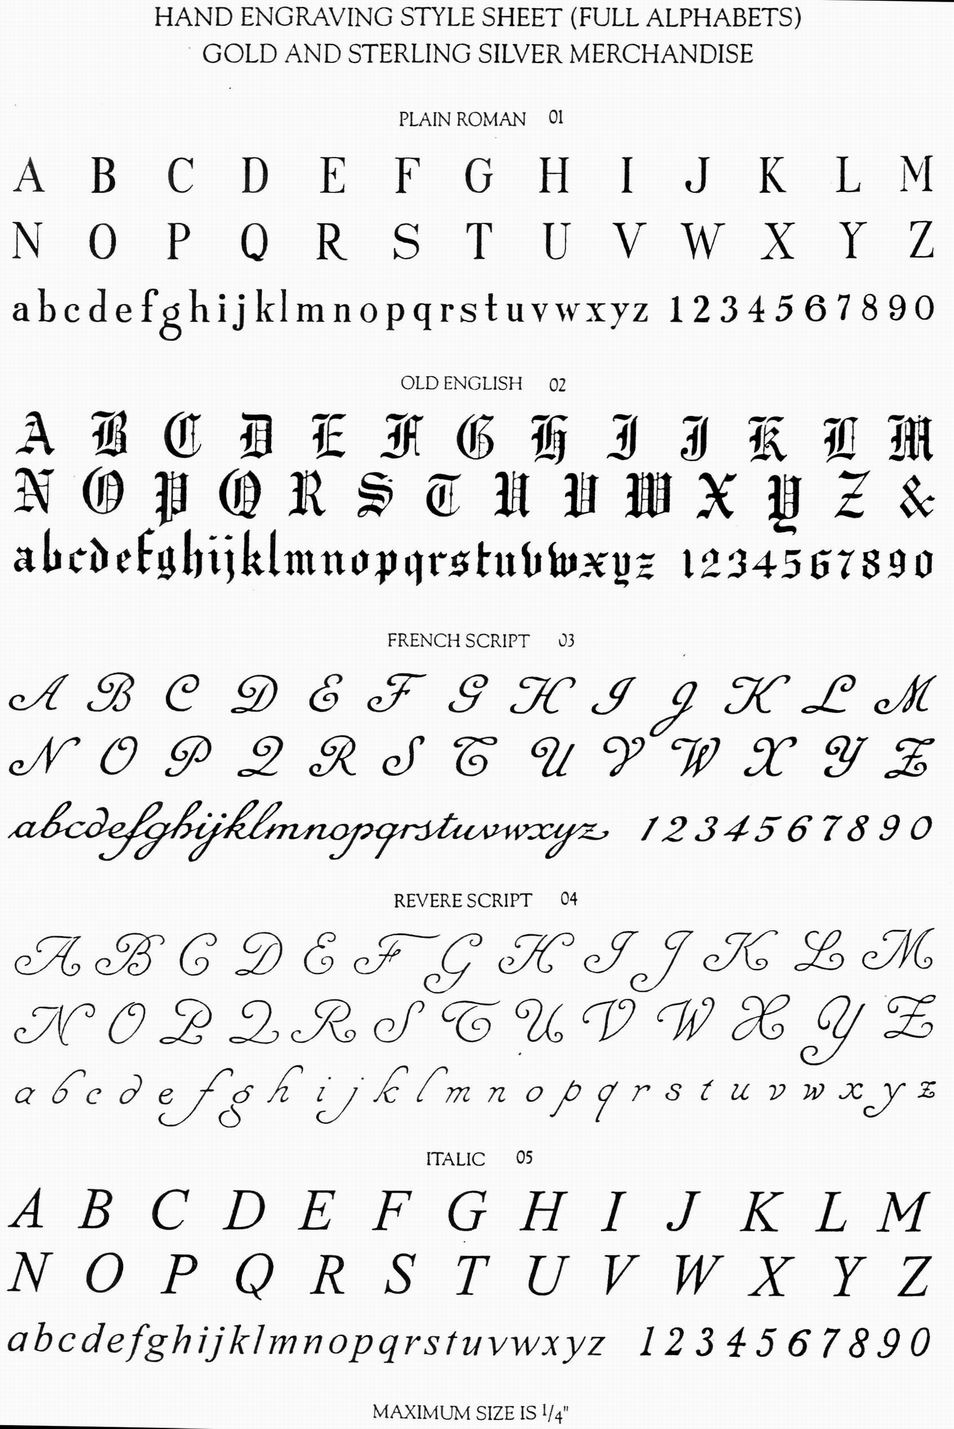 HAND ENGRAVING STYLE SHEET (FULL ALPHABETS)
GOLD AND STERLING SILVER MERCHANDISE
PLAIN ROMAN 01
A B C D E F G H I J K L M
N O P Q R S T U V W X Y Z
a b c d e f g h i j k l m n o p q r s t u v w x y z 1 2 3 4 5 6 7 8 9 0
OLD ENGLISH 02
A B C D E F G H I J K L M
N O P Q R S T U V W X Y Z &
a b c d e f g h i j k l m n o p q r s t u v w x y z 1 2 3 4 5 6 7 8 9 0
FRENCH SCRIPT 03
A B C D E F G H I J K L M
N O P Q R S T U V W X Y Z
a b c d e f g h i j k l m n o p q r s t u v w x y z 1 2 3 4 5 6 7 8 9 0
REVERE SCRIPT 04
A B C D E F G H I J K L M
N O P Q R S T U V W X Y Z
a b c d e f g h i j k l m n o p q r s t u v w x y z
ITALIC 05
A B C D E F G H I J K L M
N O P Q R S T U V W X Y Z
a b c d e f g h i j k l m n o p q r s t u v w x y z 1 2 3 4 5 6 7 8 9 0
MAXIMUM SIZE IS 1/4"